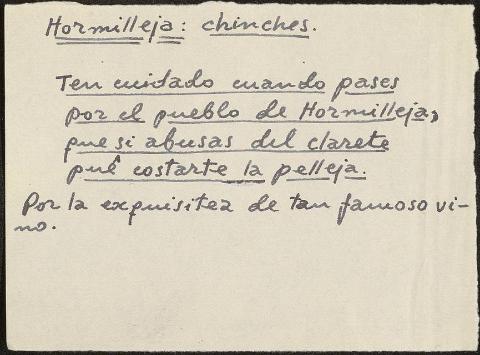 Hormilleja: chinches.
Ten cuidado cuando pases
por el pueblo de Hormilleja,
que si abusas del clarete
pué costarte la pelleja.
Por la exquisitez de tan famoso vi-
no.